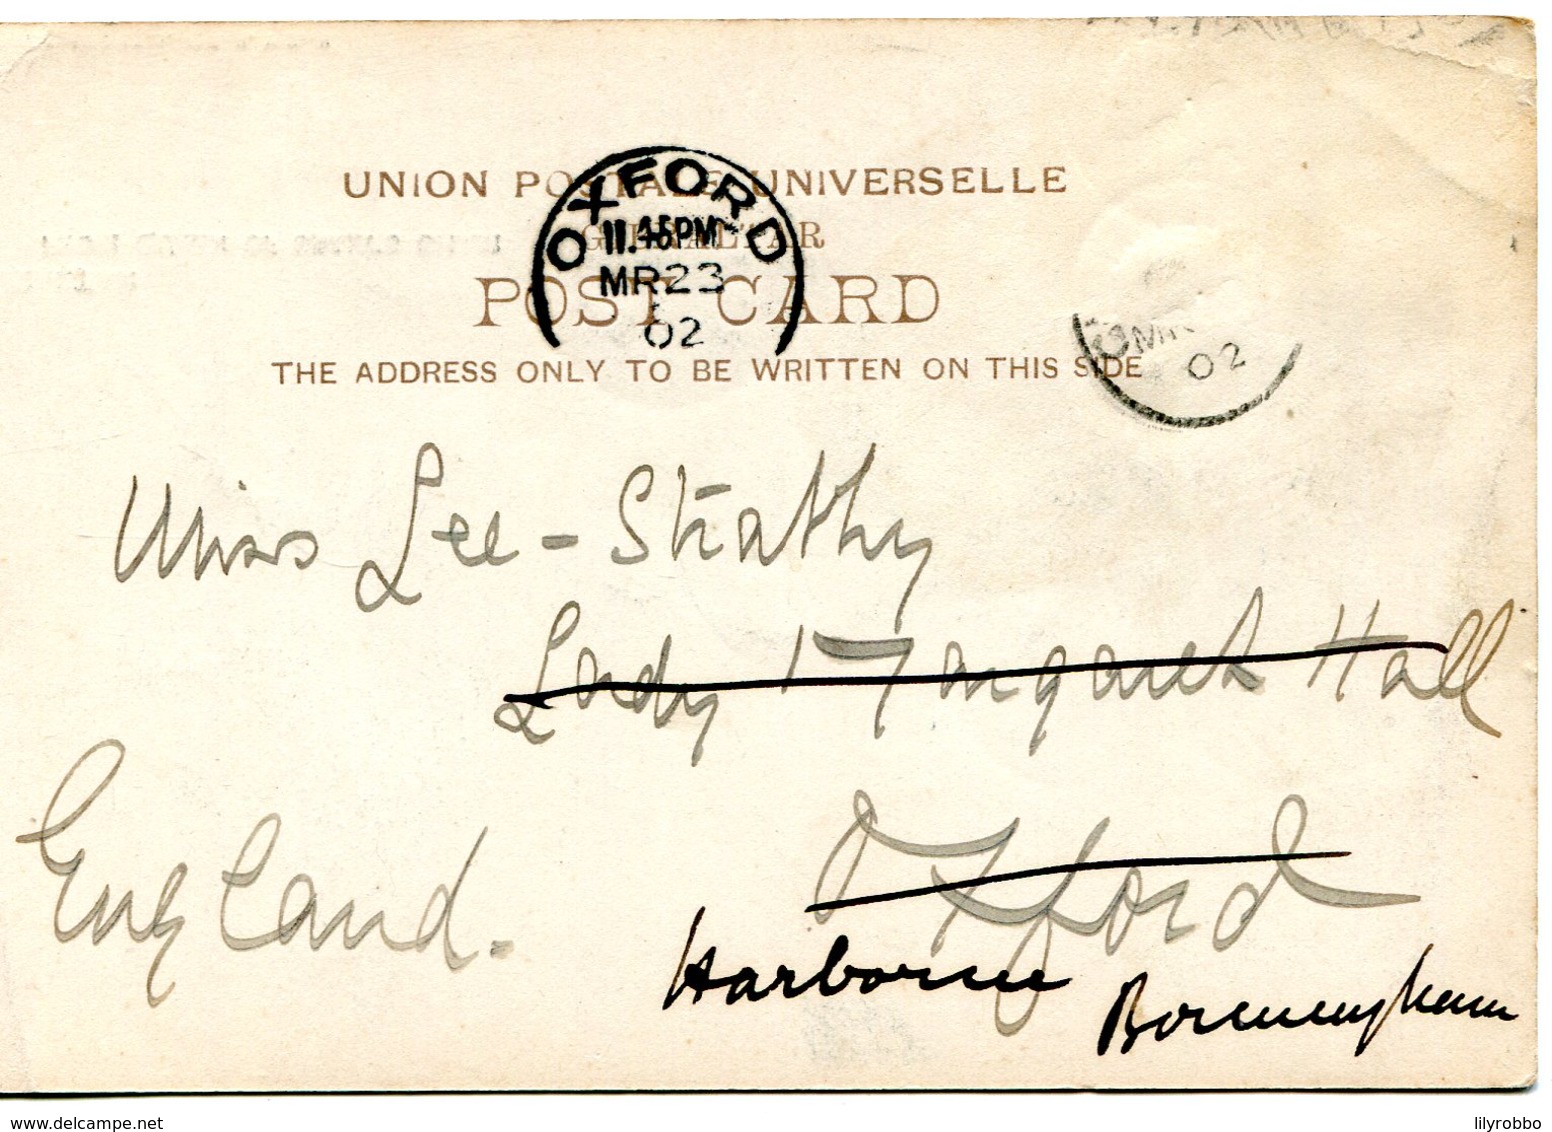 UNION POSTALE UNIVERSELLE
GIBRALTAR
POST CARD
THE ADDRESS ONLY TO BE WRITTEN ON THIS SIDE
OXFORD
11.45PM
MR 23
02
02
Miss Lee-Strathy
Lady Margaret Hall
Oxford
England.
Harborne
Birmingham
www.delcampe.net
lilyrobbo